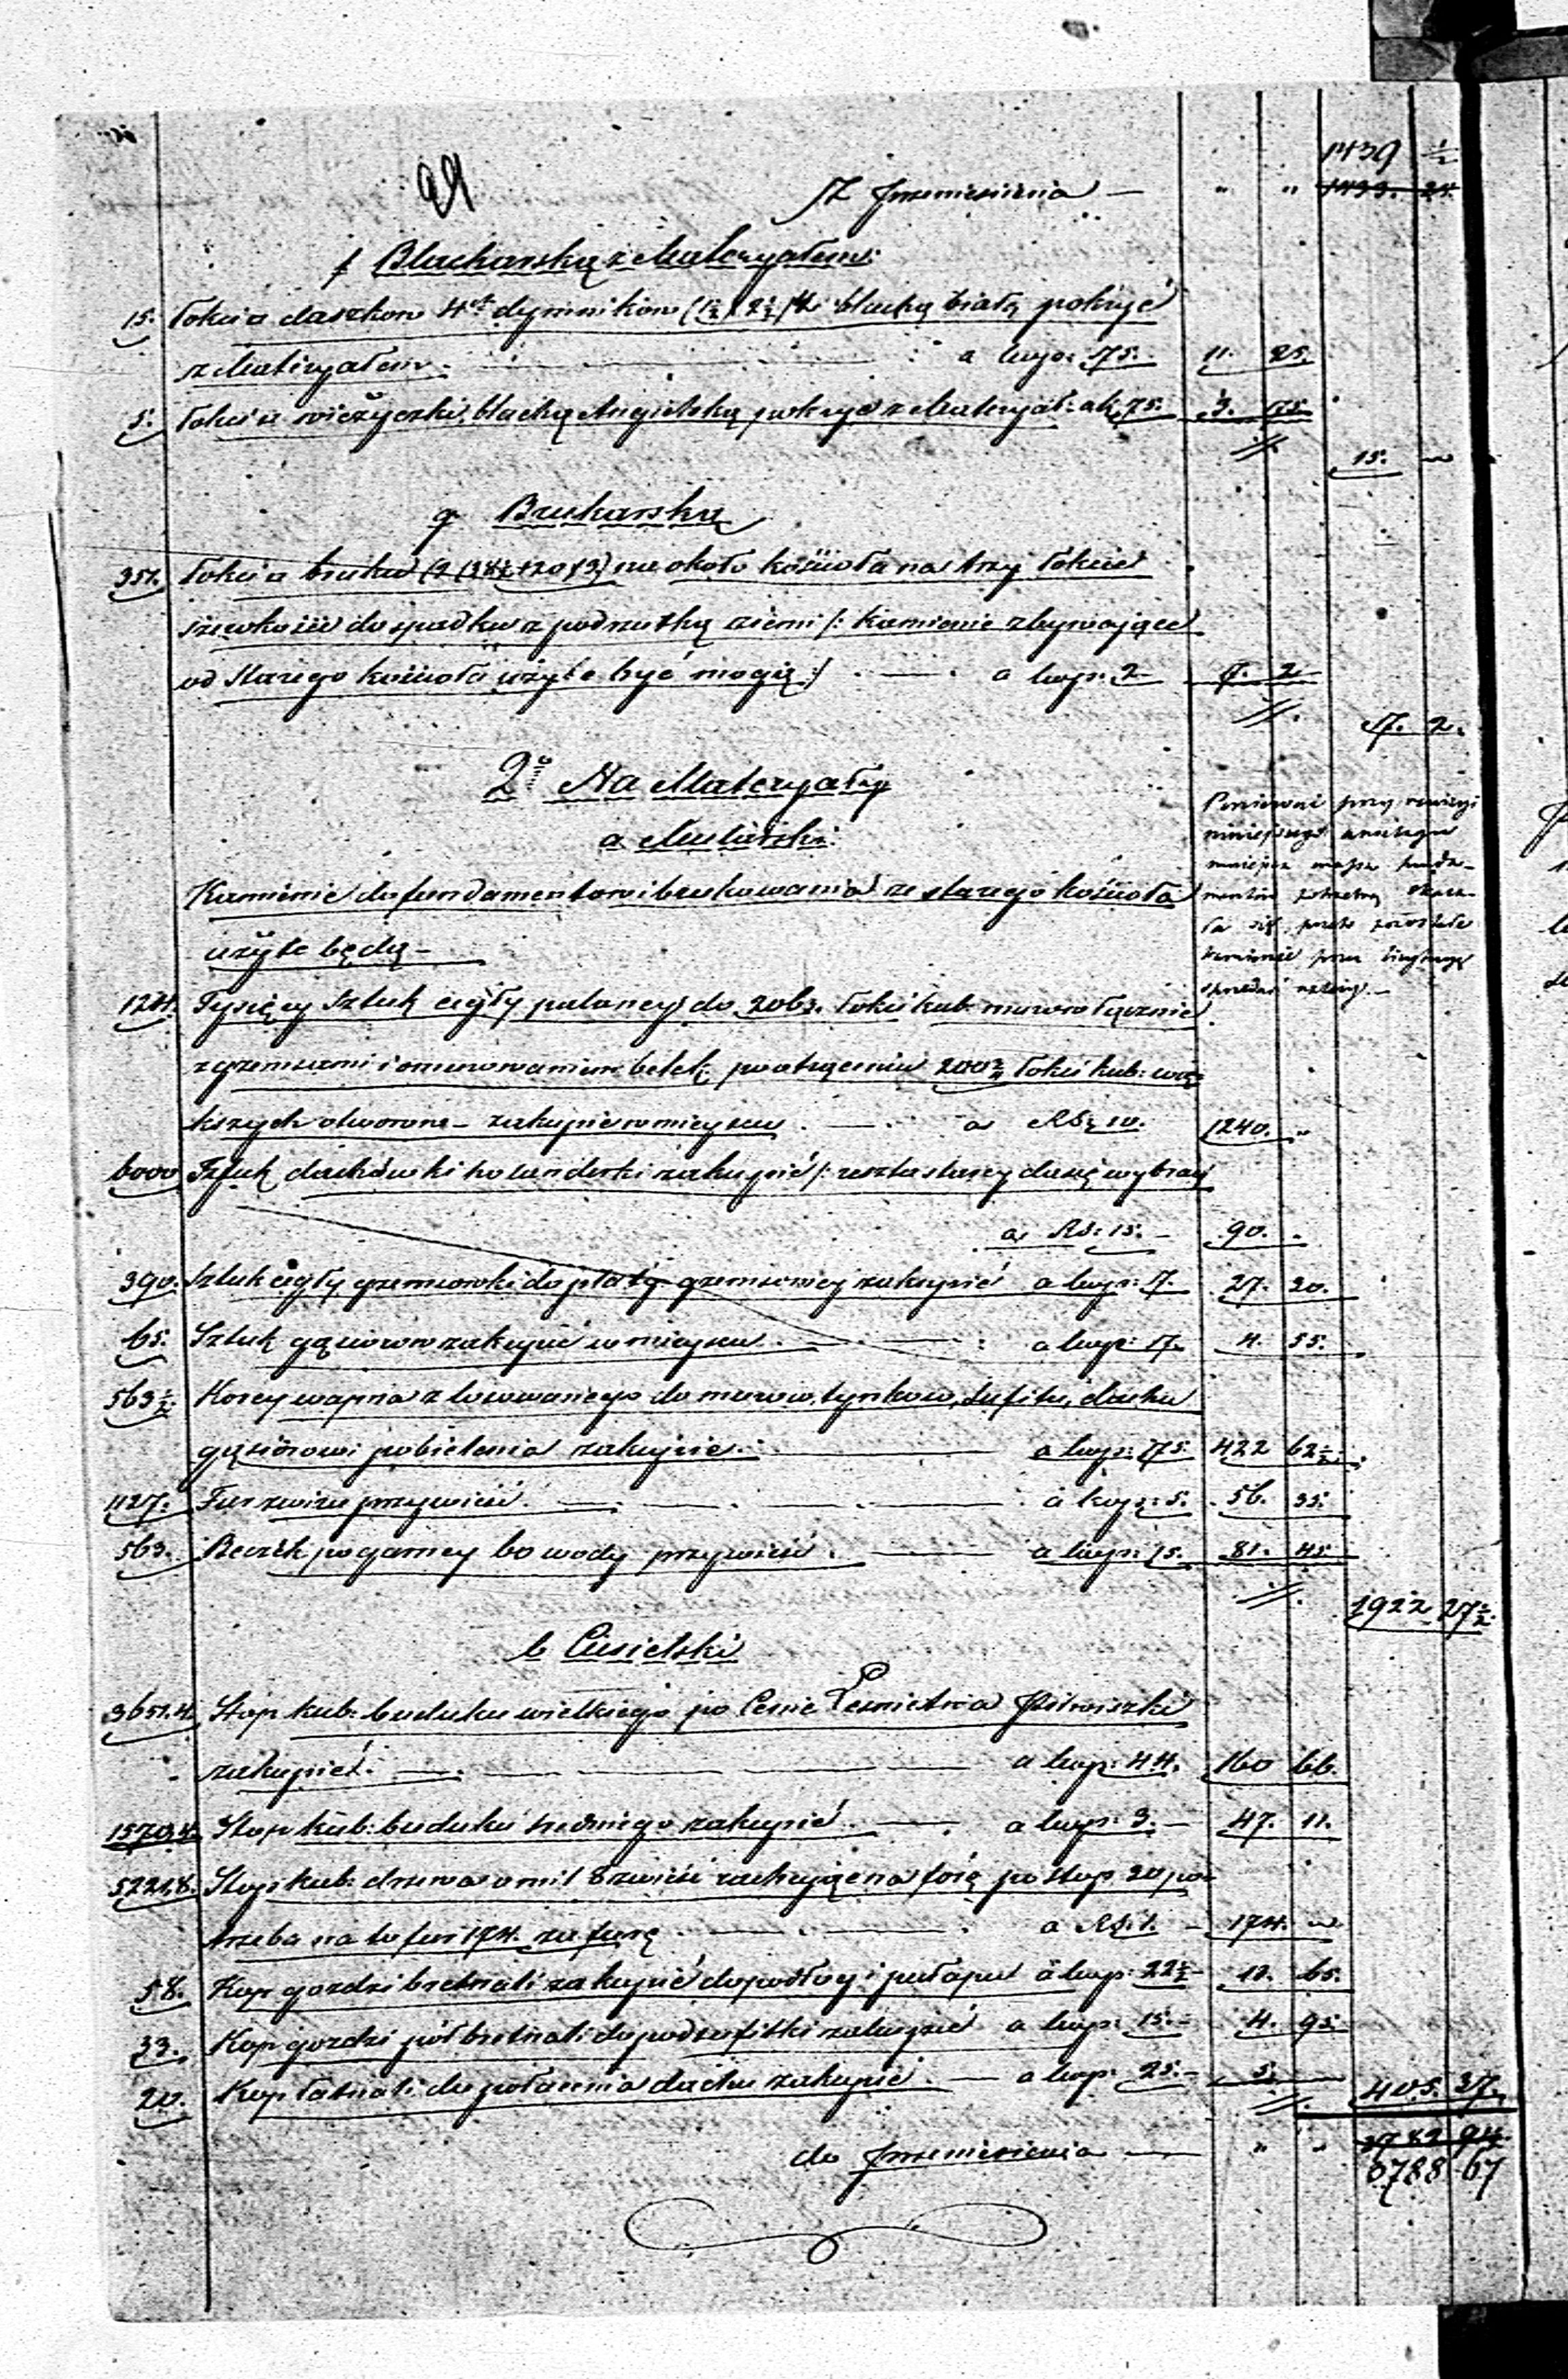 1439 ½
Z Przeniesienia — " " 1433. 24.
f Blacharską z Materyałem:
15. Łokci a daszkow 4ch dymnikow (1½ 2½) 4 blachą białą pokryć
z Materyałem. — a kop: 75. 11. 25.
5. Łokci a wieżyczki, blachą Angielską pokryć z Materyał: a k. 75. 3. 75.
15. "
g Brukarską
351. Łokci a bruku na około kościoła na trzy łokcie
szerokości do spadku z podrzutką ziemi /: Kamienie zbywające
od Starego kościoła użyte być mogą :/ — a kop: 2 7. 2
7. 2.
2o Na Materyały
a Mularski:
Kamienie do fundamentow i brukowania ze starego kościoła
użyte będą —
Ponieważ przy rewizyi
niniejszego anszlagu
mniejsza massa funda-
mentów potrzebną okaza-
ła się, przeto pozostałe
kamienie przez licytacyę
sprzedać należy. —
124. Tysięcy Sztuk cegły paloney do 2063. Łokci kub. murow łącznie
z gzemsami i omurowaniem belek, po otrąceniu 200¾ Łokci kub: wię-
kszych otworow — zakupić w mieyscu — a RS: 10. 1240. "
6000 Sztuk dachówki holenderki zakupić /: reszta starey da się wybrać
a RS: 15. — 90. "
390. Sztuk cegły gzemsowki do płaty gzemsowey zakupić a kop: 7. 27. 30.
65. Sztuk gąsiorow zakupić w mieyscu. — a kop: 7. 4. 55.
563½. Korcy wapna zlasowanego do murow, tynkow, sufitu, dachu
gąsiorow i pobielenia zakupić. — a kop: 75. 422 62½.
1127. Fur żwiru przywieźć. — a kop: 5. 56. 35.
563. Beczek po garncy 60 wody przywieźć. — a kop: 15. 81. 45
1922 27½.
b Ciesielski
3651.4. Stop kub: buduku wielkiego po Cenie Leśnictwa Pilwiszki
zakupić. — a kop: 44. 160 66.
1570,4. Stop kub: buduku średniego zakupić. — a kop: 3. — 47. 11.
5221,8. Stop kub: drzewa o mil 8 zwieźć rachując na furę po stop 30 po-
trzeba na to fur 174. za furę — a RS: 1. — 174. "
58. Kop gozdzi bretnali zakupić do podłog i pułapu a kop: 22½ — 13. 65.
33. Kop gozdzi pół bretnali do podsufitki zakupić a kop: 15. — 4. 95.
20. Kop łatnali do połacenia dachu zakupić. — a kop: 25. — 5. —
405. 37.
do Przeniesienia — " " 3782 94
3788 67